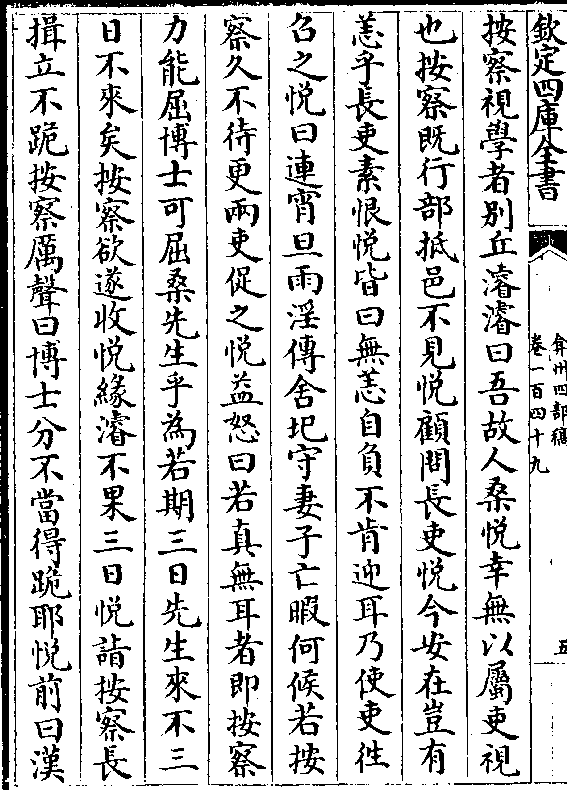 欽定四庫全書
弇州四部稿
卷一百四十九
五
按察視學者別丘濬濬曰吾故人桑悅幸無以屬吏視
也按察既行部抵邑不見悅顧問長吏悅今安在豈有
恙乎長吏素恨悅皆曰無恙自負不肯迎耳乃使吏徃
召之悅曰連宵旦雨淫傳舍圮守妻子亡暇何候若按
察久不待更兩吏促之悅益怒曰若真無耳者即按察
力能屈博士可屈桑先生乎為若期三日先生來不三
日不來矣按察欲遂收悅緣濬不果三日悅詣按察長
揖立不跪按察厲聲曰博士分不當得跪耶悅前曰漢